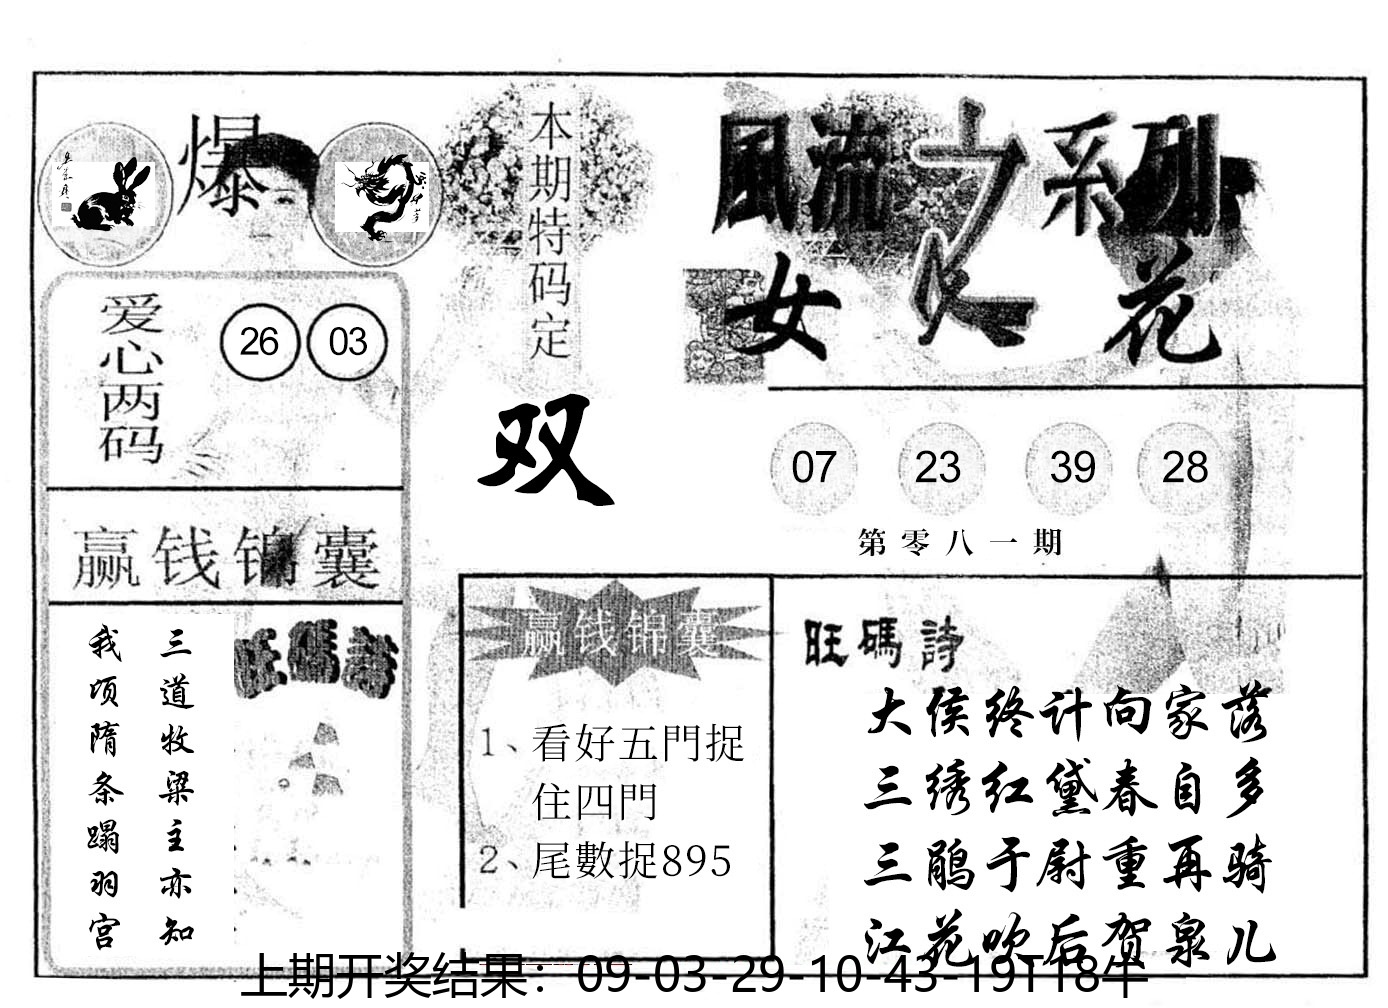 爆
本期特码定
双
爱心两码
26 03
赢钱锦囊
旺碼詩
三道牧梁主亦知
我顷隋条蹋羽宫
風流之系列
女人花
07 23 39 28
第零八一期
赢钱锦囊
1、看好五門捉
住四門
2、尾數捉895
旺碼詩
大侯终计向家落
三绣红黛春自多
三鹃于尉重再骑
江花吹后贺泉儿
上期开奖结果：09-03-29-10-43-19T18牛